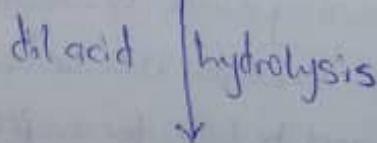 dil acid hydrolysis